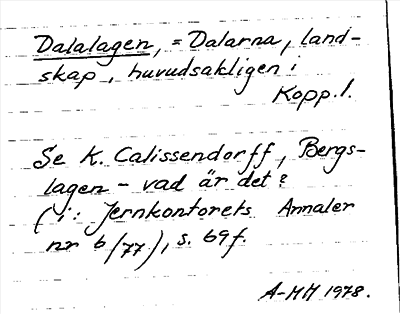 Dalalagen, = Dalarna, land-
skap, huvudsakligen i
Kopp. l.
Se K. Calissendorff, Bergs-
lagen - vad är det?
(i: Jernkontorets Annaler
nr 6/77), s. 69 f.
A-MH 1978.